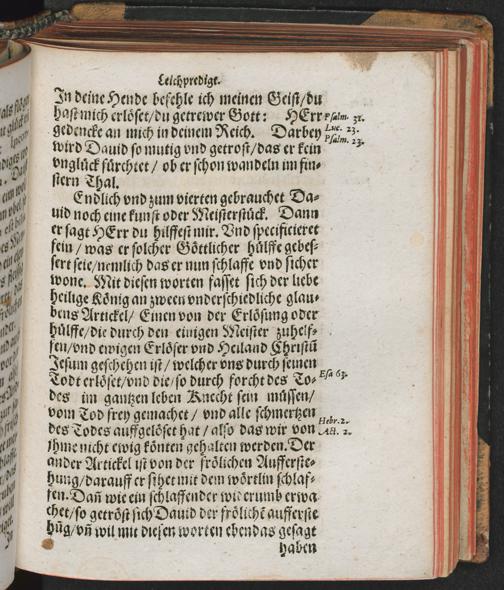 Leichpredigt.
In deine Hende befehle ich meinen Geist/du
hast mich erlöset/du getrewer Gott: HErr
Psalm. 31.
gedencke an mich in deinem Reich. Darbey
Luc. 23.
wird Dauid so mutig vnd getrost/das er kein
Psalm. 23.
vnglück fürchtet / ob er schon wandeln im fin-
stern Thal.
Endlich vnd zum vierten gebrauchet Da-
uid noch eine kunst oder Meisterstück. Dann
er sagt HErr du hilffest mir. Vnd specificieret
fein / was er solcher Göttlicher hülffe gebes-
sert seie/nemlich das er nun schlaffe vnd sicher
wone. Mit diesen worten fasset sich der liebe
heilige König an zween vnderschiedliche glau-
bens Artickel/ Einen von der Erlösung oder
hülffe/die durch den einigen Meister zuhelf-
fen/vnd ewigen Erlöser vnd Heiland Christū
Jesum geschehen ist / welcher vns durch seinen
Todt erlöset/vnd die/so durch forcht des To-
Esa 63.
des im gantzen leben Knecht sein müssen/
vom Tod frey gemachet / vnd alle schmertzen
des Todes auffgelöset hat / also das wir von
Hebr. 2.
Act. 2.
Ihme nicht ewig könten gehalten werden. Der
ander Artickel ist von der frölichen Aufferste-
hung/darauff er sihet mit dem wörtlin schlaf-
fen. Dañ wie ein schlaffender widerumb erwa-
chet/so getröst sich Dauid der frölichē aufferste
hūg/vñ wil mit diesen worten eben das gesagt
haben